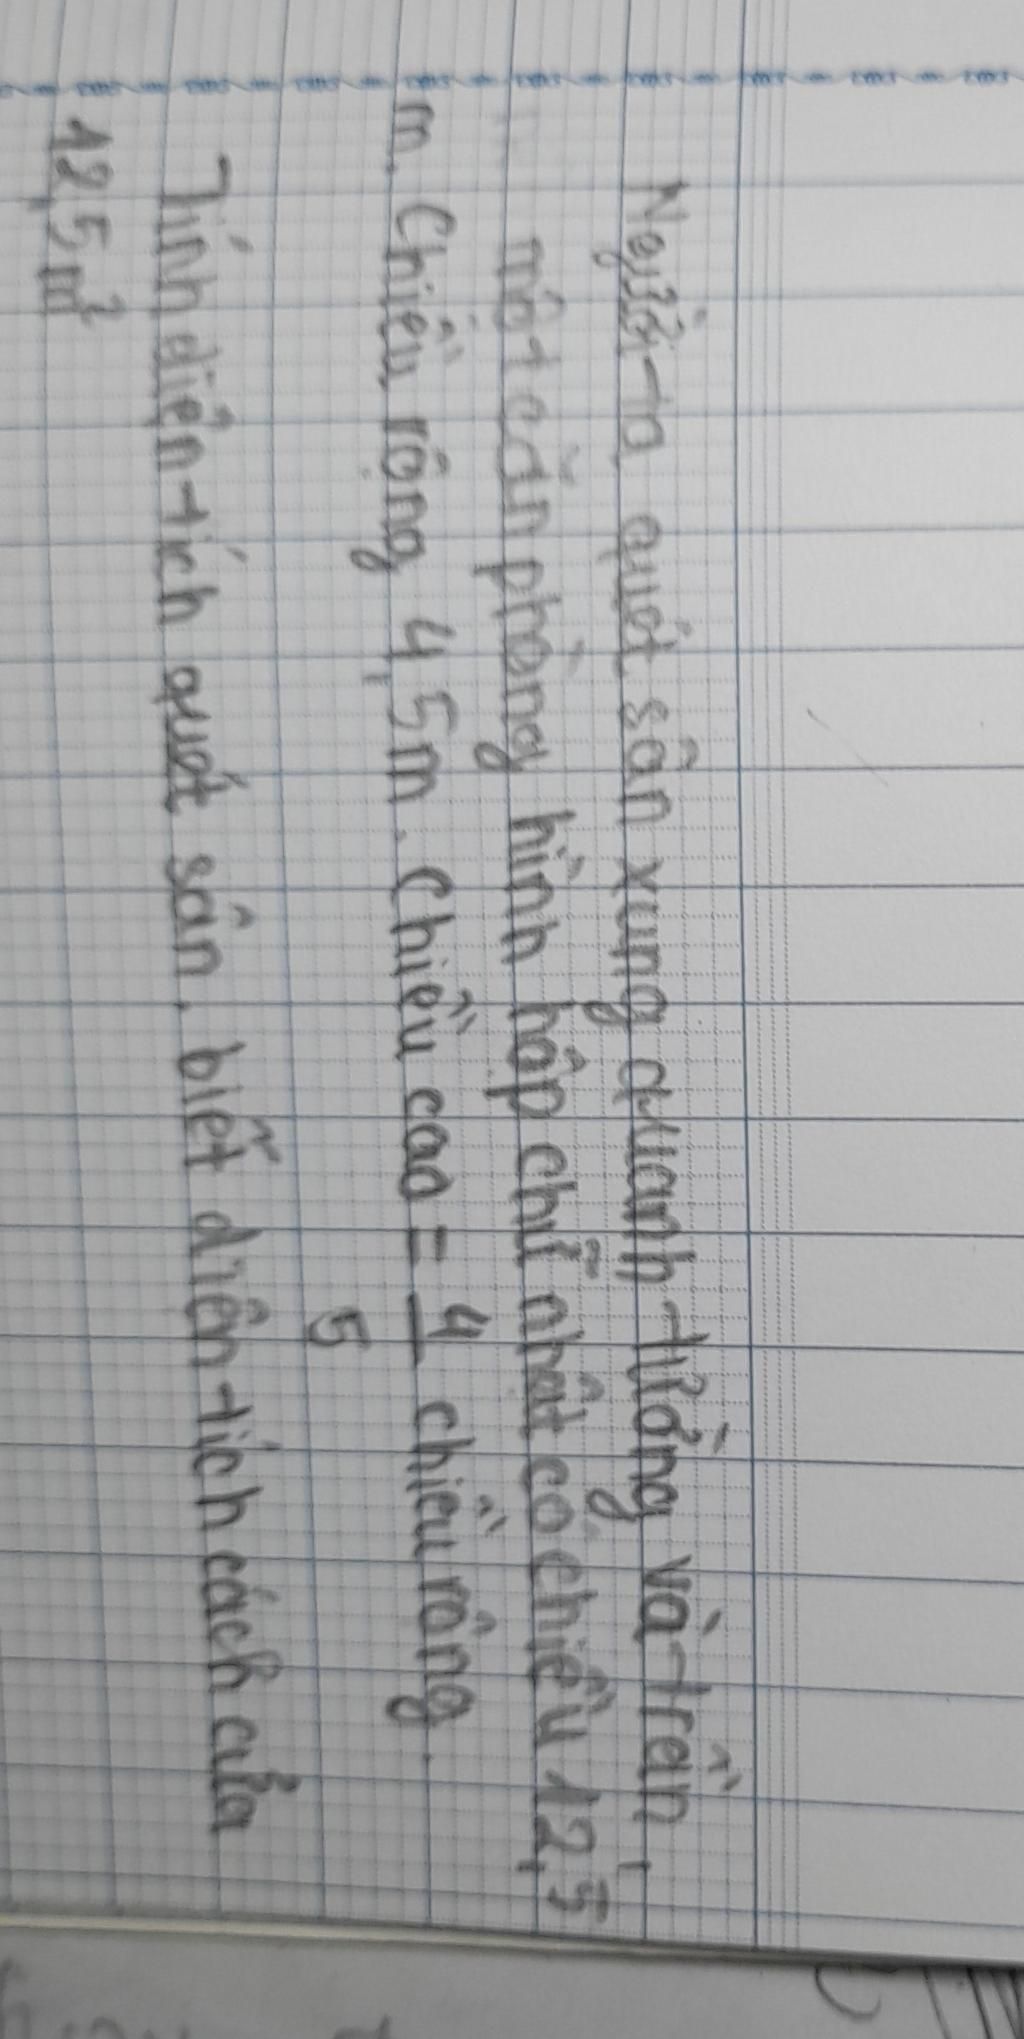 Người ta quét sân xung quanh tường và trần,
một căn phòng hình hộp chữ nhật có chiều 12,5
m. Chiều rộng 4,5m. Chiều cao = 4/5 chiều rộng.
Tính diện tích quét sân, biết diện tích cách cửa
12,5m²